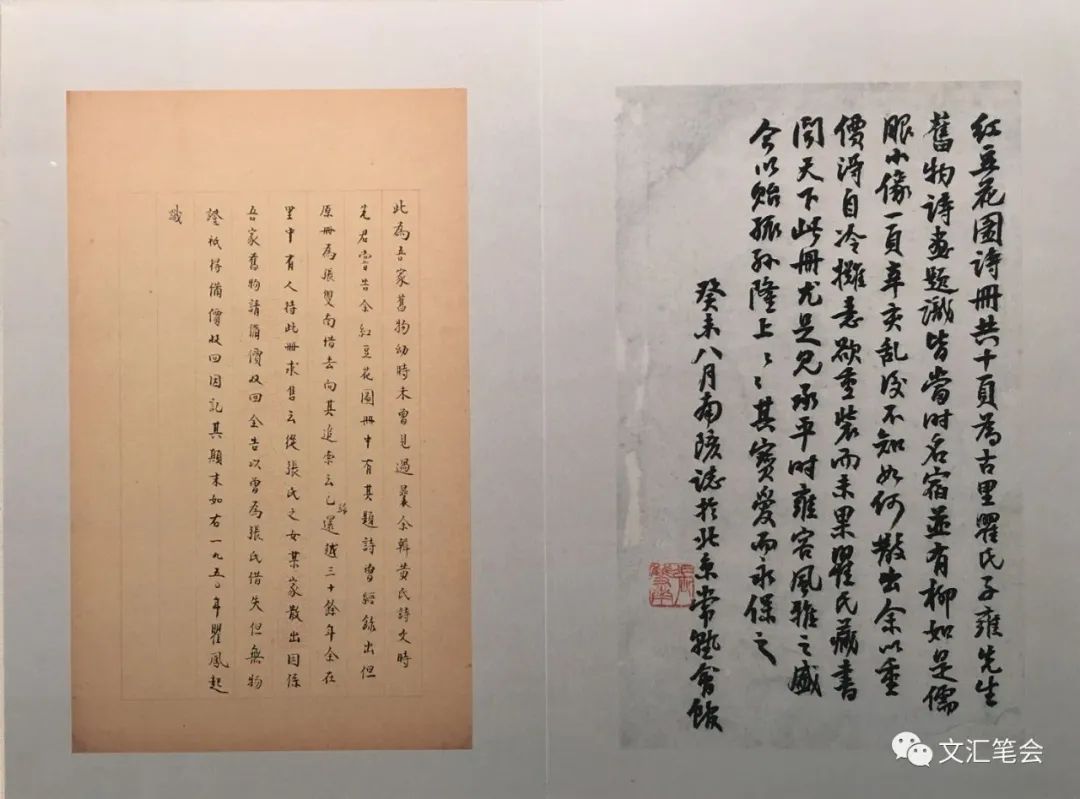 紅豆花園詩冊共十頁為古里瞿氏子雍先生
舊物詩畫題識皆當时名宿並有柳如是儒
服小像一頁辛亥乱後不知如何散出余以重
價得自冷攤意欲重裝而未果瞿氏藏書
聞天下此冊尤足見承平时雍容風雅之盛
今以貽孫孫隆上〻其寶愛而永保之
癸未八月南陔誌於北京常熟會館
此為吾家舊物幼時未曾見過曩余輯黄氏詩文時
先君嘗告余紅豆花園冊中有其題詩曾經錄出但
原冊為張雙南借去向其追索云已還歸越三十餘年余在
里中有人持此冊求售云從張氏之女某家散出因係
吾家舊物請備價收回余告以曾為張氏借失但無物
證祇得備價收回因記其顛末如右一九五〇年瞿鳳起
識
文汇笔会